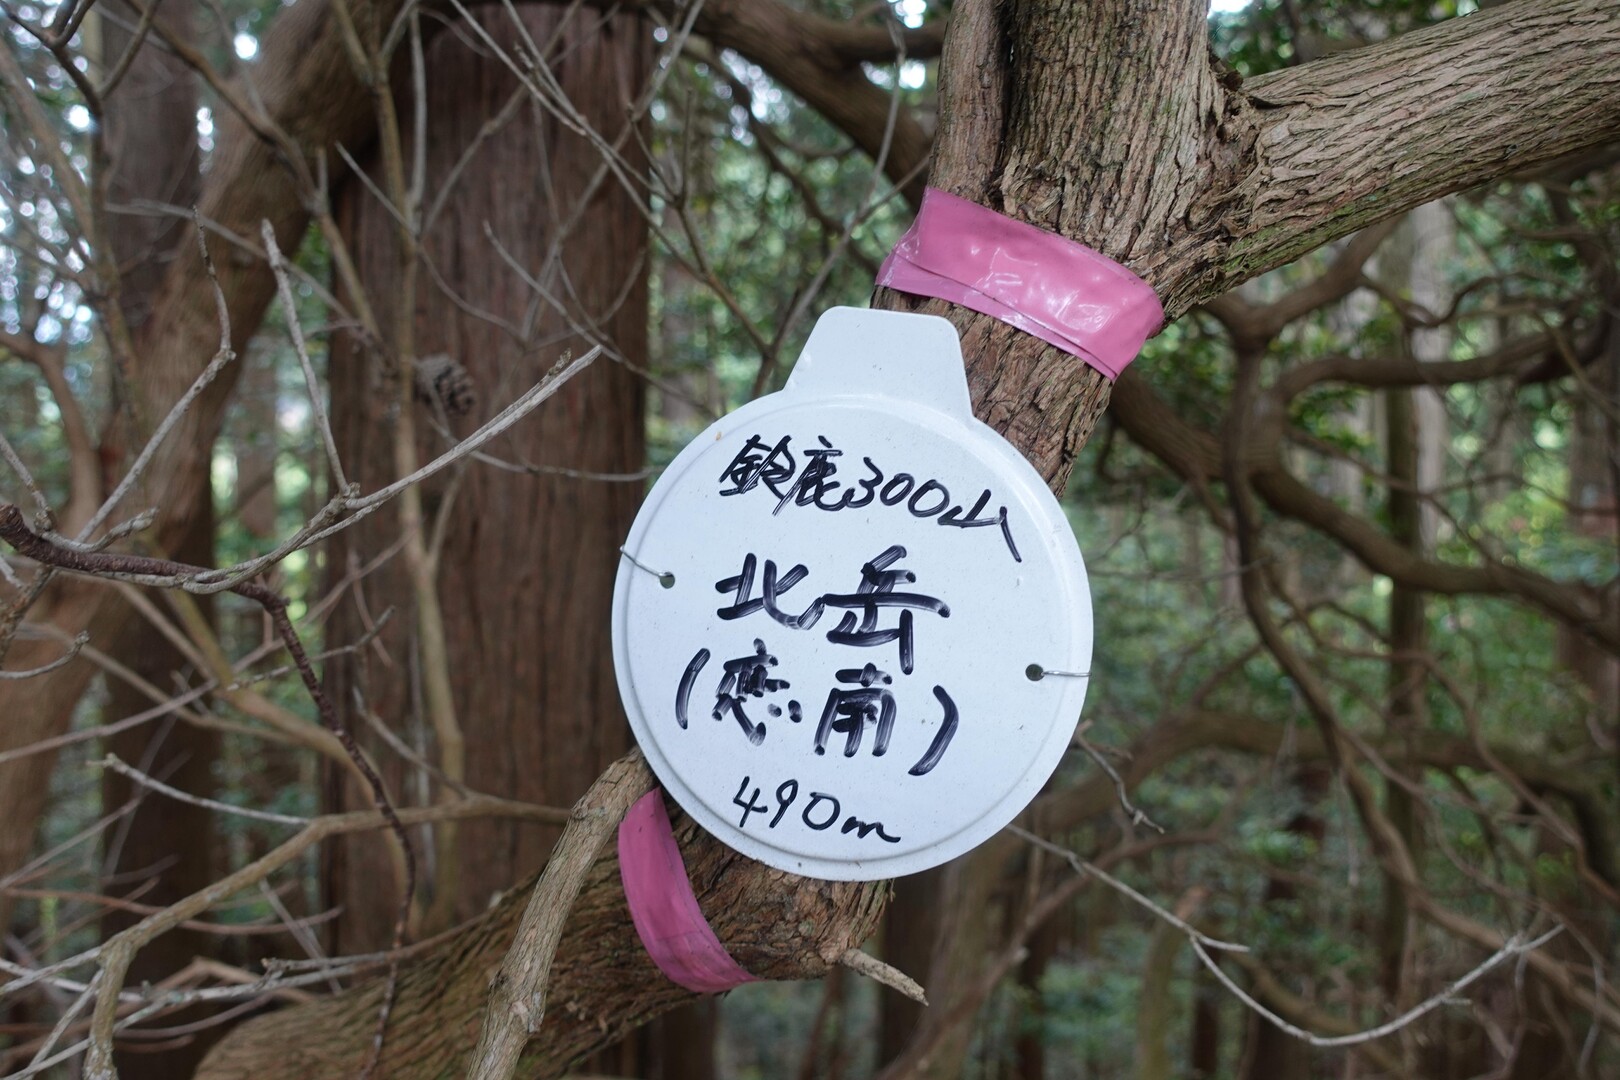 鈴鹿300山
北岳
(恋南)
490m